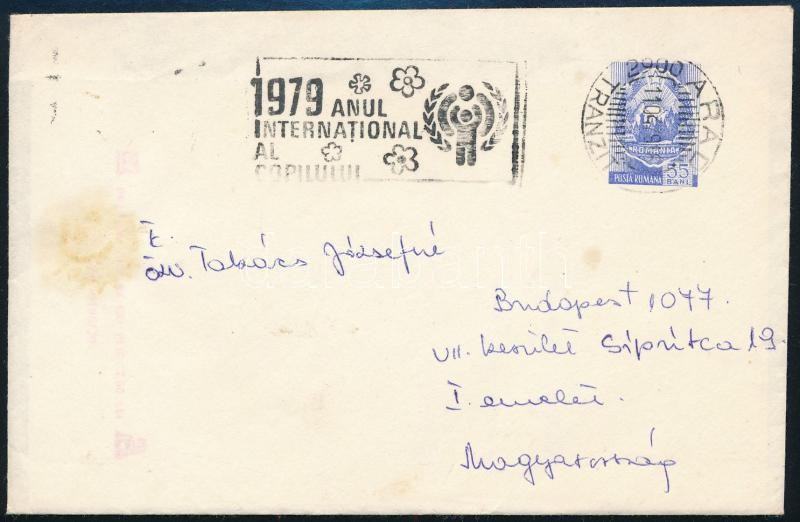 1979 ANUL
INTERNAȚIONAL
AL
COPILULUI
2900 ARAD
TRANZIT
ROMANIA
POSTA ROMANA 55 BANI
T.
özv. Takács Józsefné
Budapest 1077.
VII. kerület Sip utca 19.
I. emelet.
Magyarország